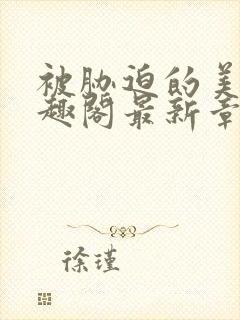 被胁迫的美
趣阁最新章
徐瑾